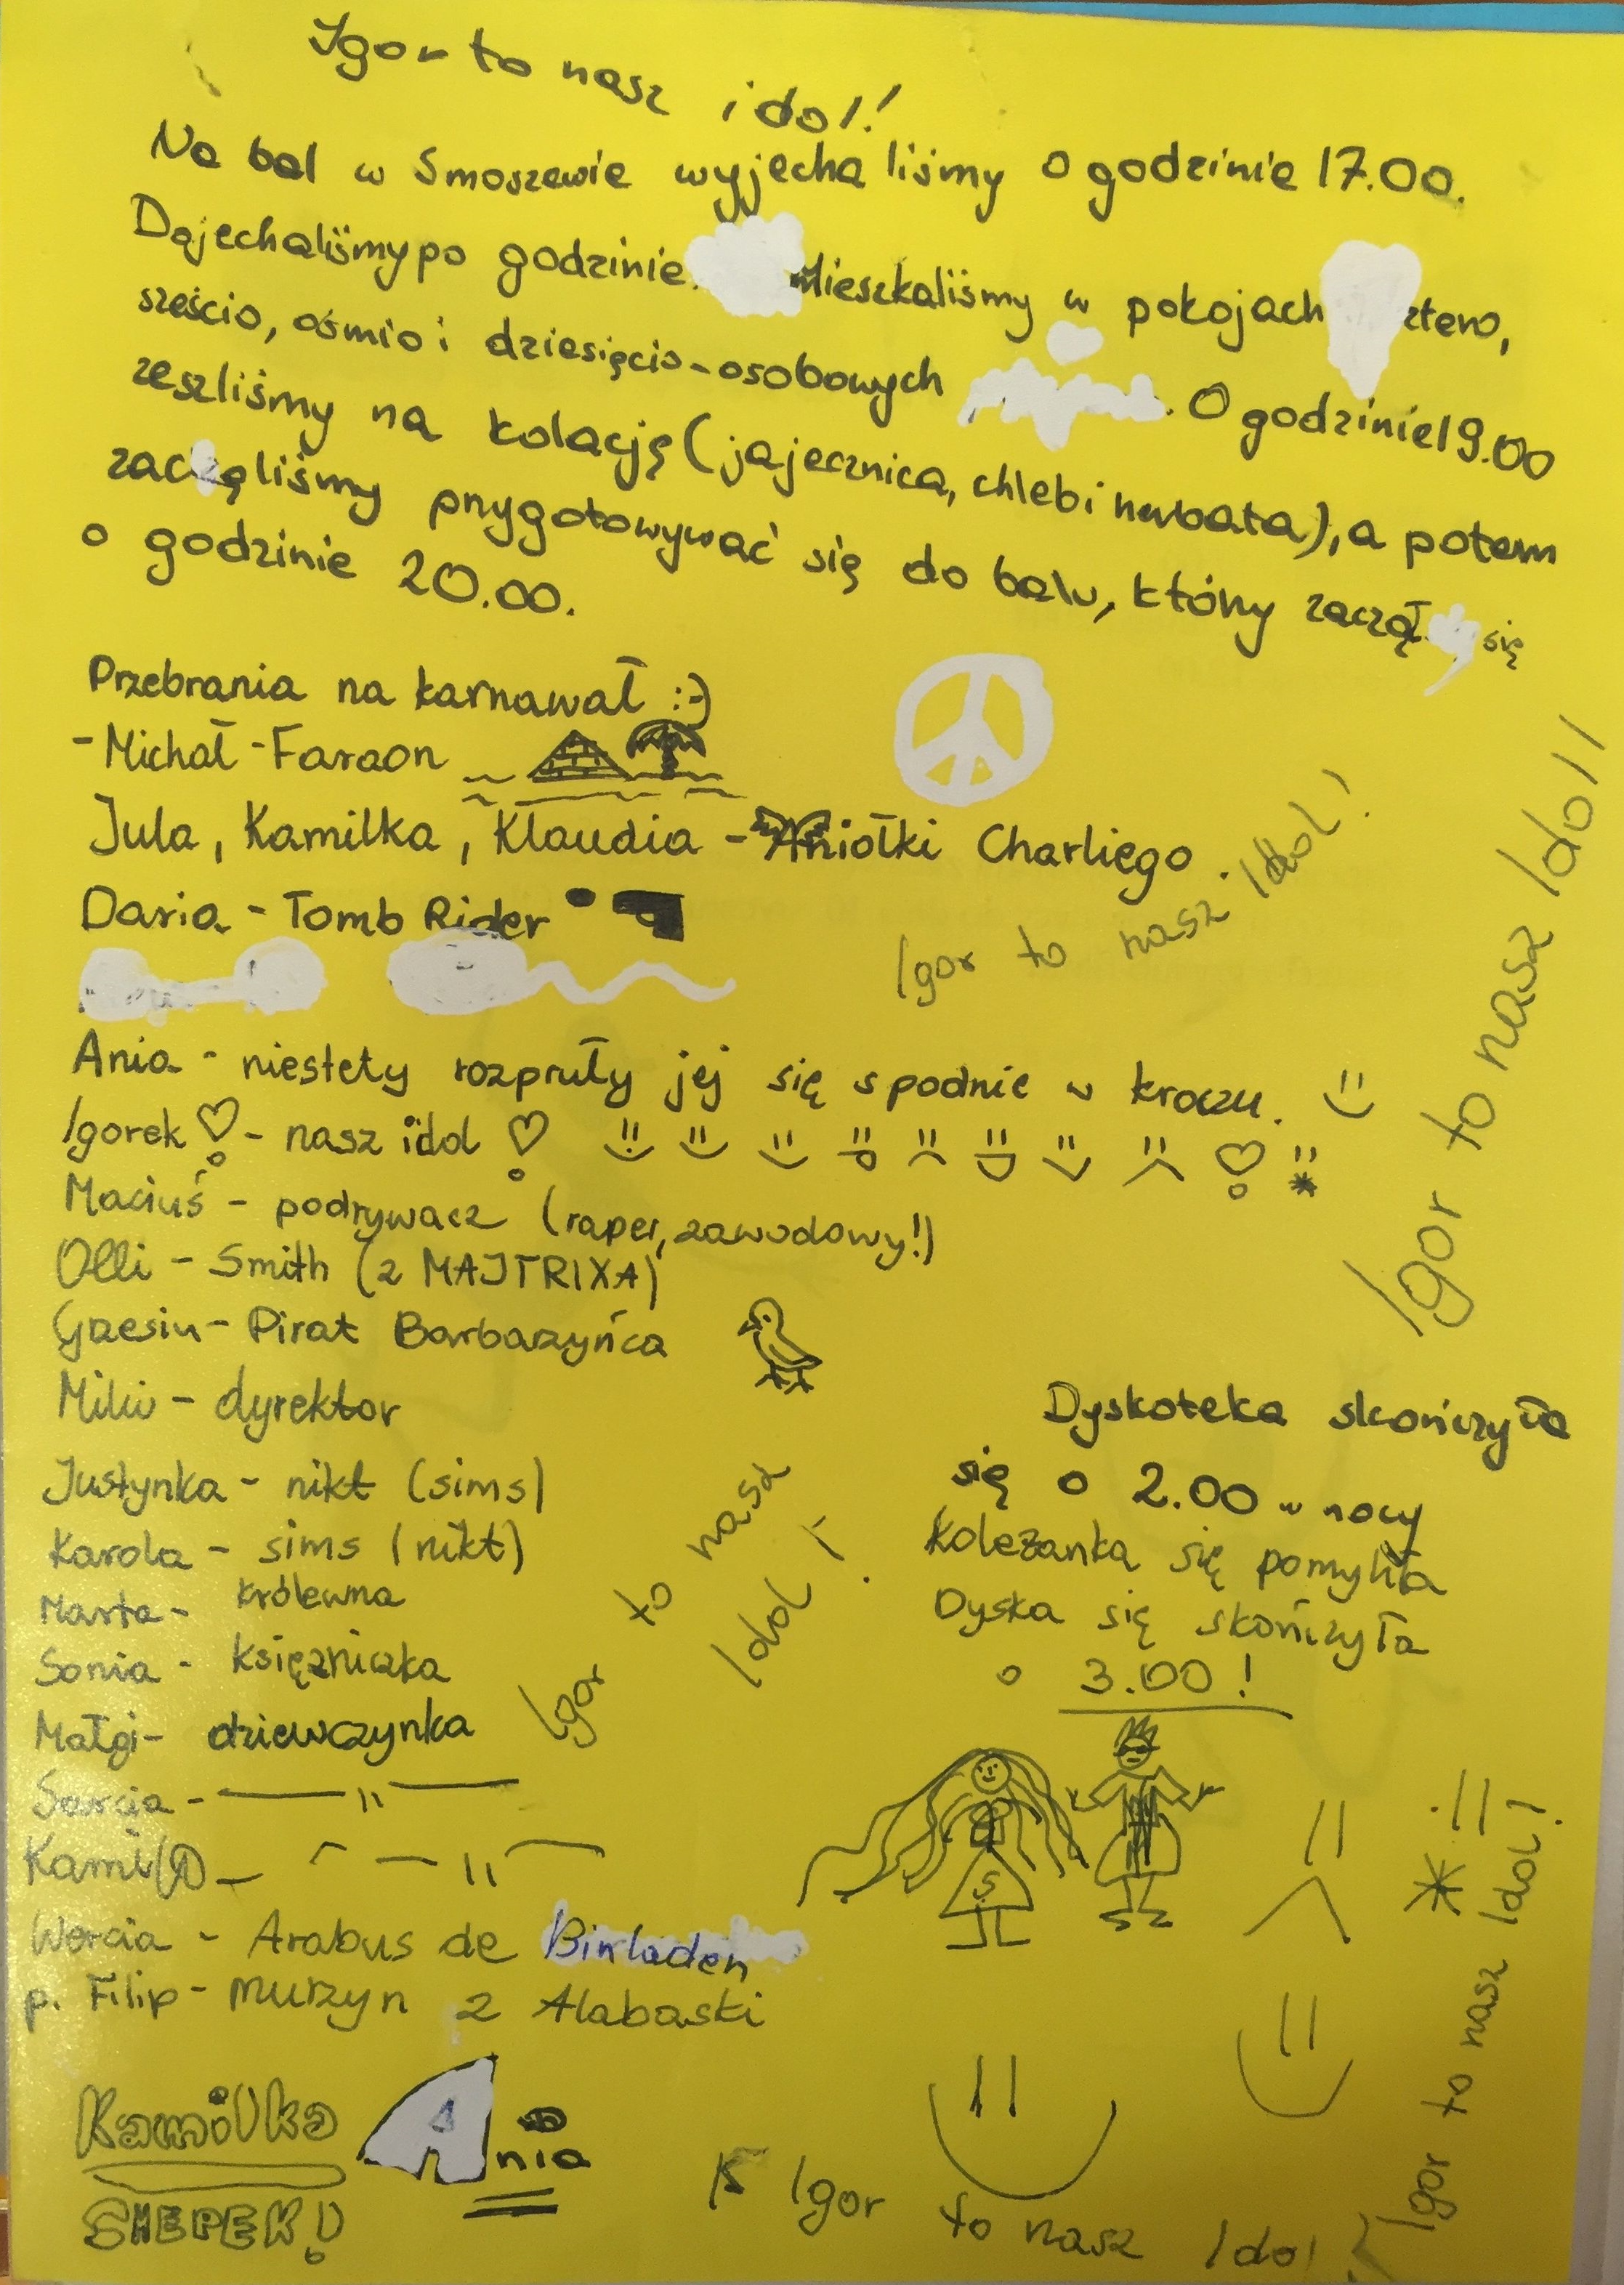 Igor to nasz idol!
Na bal w Smoszewie wyjechaliśmy o godzinie 17.00.
Dojechaliśmy po godzinie. Mieszkaliśmy w pokojach cztero,
sześcio, ośmio i dziesięcio-osobowych. O godzinie 19.00
zeszliśmy na kolację (jajecznica, chleb i herbata), a potem
zaczęliśmy przygotowywać się do balu, który zaczął się
o godzinie 20.00.
Przebrania na karnawał :-)
- Michał - Faraon
Jula, Kamilka, Klaudia - Aniołki Charliego.
Daria - Tomb Rider
Igor to nasz Idol!
Igor to nasz Idol!
Ania - niestety rozpruły jej się spodnie w kroczu.
Igorek - nasz idol
Maciuś - podrywacz (raper, zawodowy!)
Olli - Smith (z MAJTRIXA)
Grzesiu - Pirat Barbarzyńca
Miliu - dyrektor
Justynka - nikt (sims)
Karola - sims (nikt)
Marta - królewna
Sonia - księżniczka
Małgi - dziewczynka
Sarcia - — 11 —
Kamil - — 11 —
Wercia - Arabus de Binladen
p. Filip - murzyn z Alabaski
Igor to nasz
Idol!
Dyskoteka skończyła
się o 2.00 w nocy
Koleżanka się pomyliła
Dyska się skończyła
o 3.00!
S
Kamilka
SHEPEK!
Ania
Igor to nasz Idol
Igor to nasz Idol!